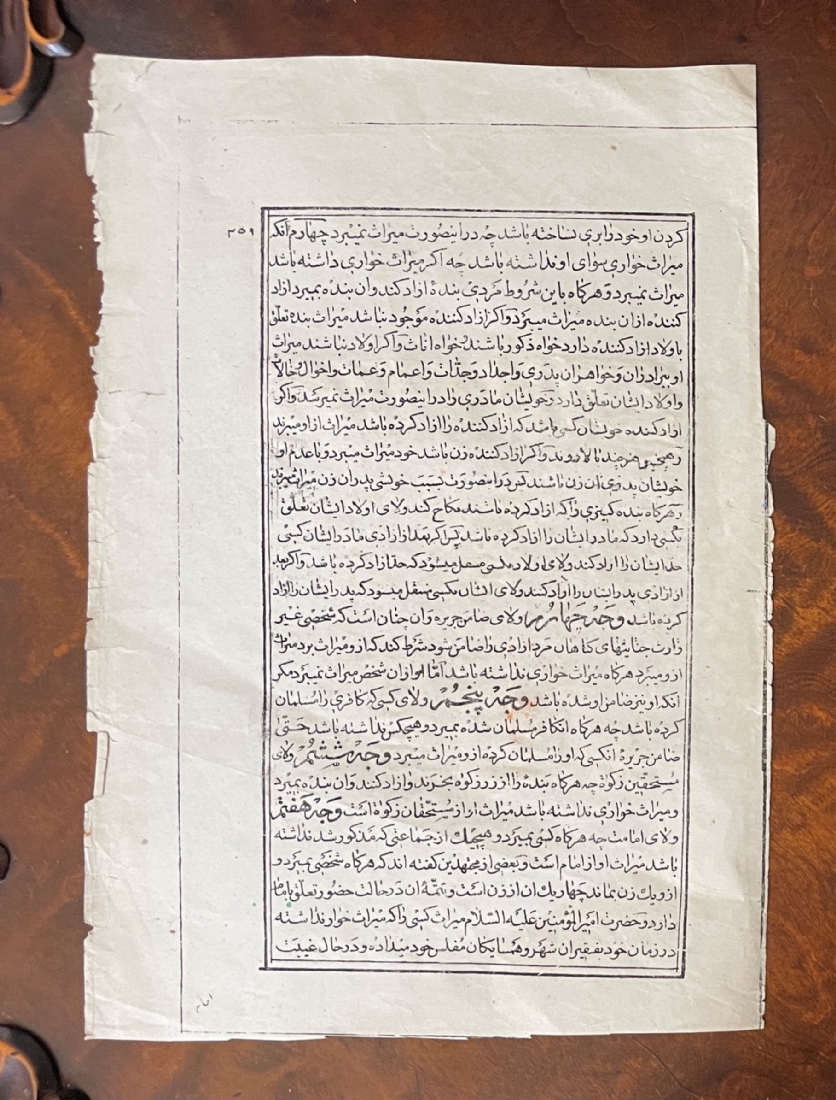 ۲۵۹
کردن او خود را بری نساخته باشد چه در اینصورت میراث نمیبرد چهارم آنکه
میراث خواری سوای او نداشته باشد چه اکر میراث خواری داشته باشد
میراث نمیبرد و هرکاه باین شروط مردی بندهٔ ازاد کند و ان بنده بمیرد ازاد
کننده از ان بنده میراث میبرد و اکر ازاد کننده موجود نباشد میراث بنده تعلق
باولاد ازاد کننده دارد خواه ذکور باشند خواه اناث و اکر اولاد نباشند میراث
او ببرادران و خواهران پدری و اجداد و جدات و اعمام و عمات و اخوال و خالات
و اولاد ایشان تعلق دارد و خویشان مادری را در اینصورت میراث نمیرسد و اکر
ازاد کننده خویشان کسی باشد که ازاد کننده را ازاد کرده باشد میراث از او میبرند
و همچنین هر چند بالا روند و اکر ازاد کننده زن باشد خود میراث میبرد و با عدم او
خویشان پدری ان زن باشند پس در اینصورت بسبب خویشی پدران زن میراث میبرند
و هرکاه بنده کنیزی را که ازاد کرده باشند نکاح کند ولای اولاد ایشان تعلق
بکسی دارد که مادر ایشان را ازاد کرده باشد پس اکر بعد از ازادی مادر ایشان کسی
جد ایشان را ازاد کند ولای اولاد بکسی منتقل میشود که جد ازاد کرده باشد و اکر بعد
از ازادی پدر ایشان را ازاد کنند ولای ایشان بکسی منتقل میشود که پدر ایشان را ازاد
کرده باشد وجه چهارم ولای ضامن جریره و ان چنان است که شخصی غیر
را در جنایتهای کناهان مرد ازادی را ضامن شود شرط کند که از و میراث برد میراث
از و میبرد هرکاه میراث خواری نداشته باشد امّا او از ان شخص میراث نمیبرد مکر
آنکه او نیز ضامن او شده باشد وجه پنجم ولای کسی که کافری را مسلمان
کرده باشد چه هرکاه انکافر مسلمان شده بمیرد و هیچکس نداشته باشد حتّی
ضامن جریره انکسی که او را مسلمان کرده از و میراث میبرد وجه ششم ولای
مستحقین زکوة چه هرکاه بنده را از زر زکوة بخرند و ازاد کنند و ان بنده بمیرد
و میراث خواری نداشته باشد میراث او از مستحقان زکوة است وجه هفتم
ولای امامت چه هرکاه کسی بمیرد و هیچیک از جماعتی که مذکور شد نداشته
باشد میراث او از امام است و بعضی از مجتهدین کفته اند که هرکاه شخصی بمیرد و
از و یک زن بماند چهار یک ان از زن است و تتمّه ان در حالت حضور تعلق بامام
دارد و حضرت امیر المؤمنین علیه السلام میراث کسی را که میراث خوار نداشته
در زمان خود بفقیران شهر و همسایکان مفلس خود میداده و در حال غیبت